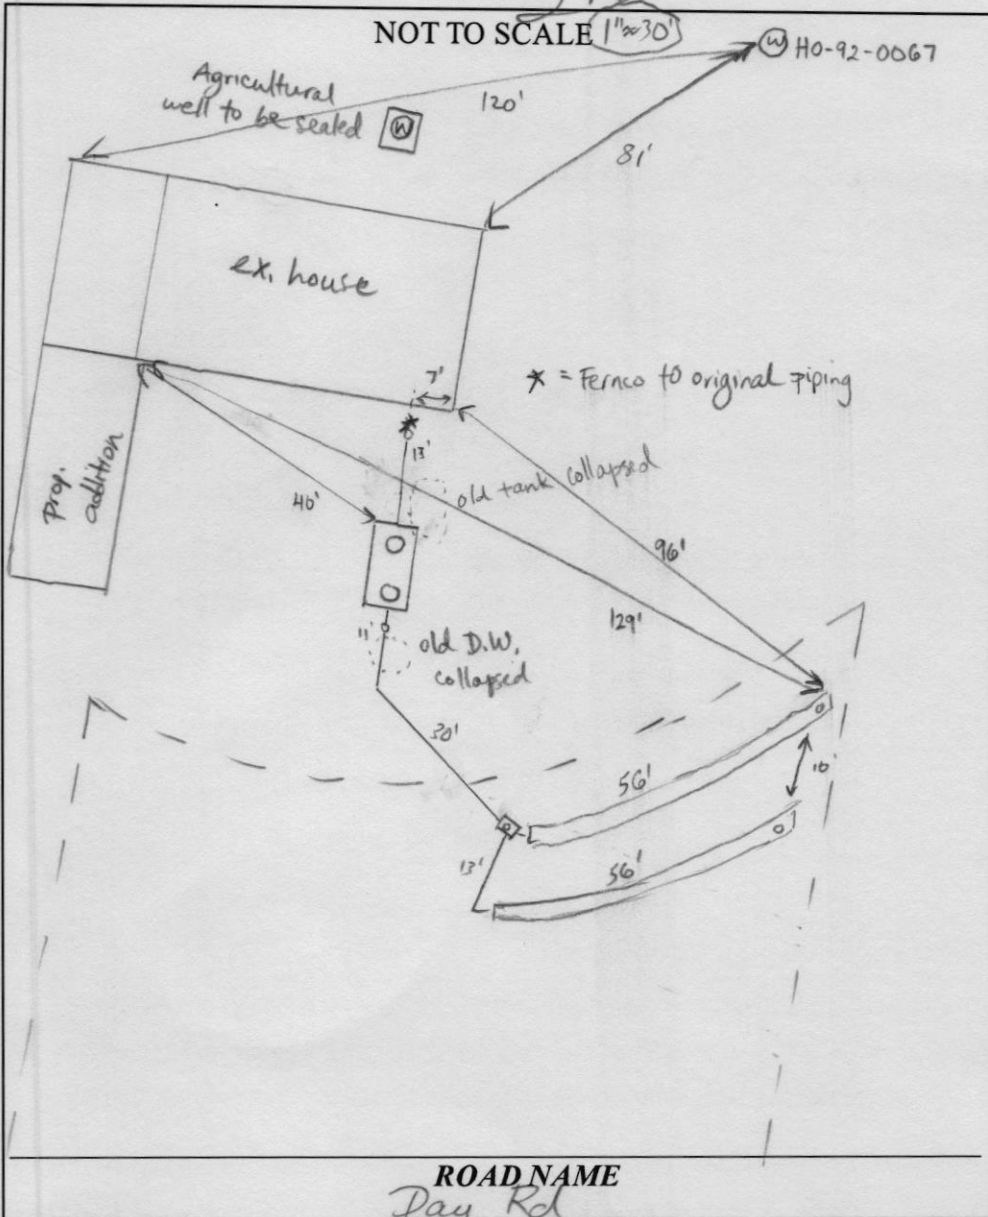 NOT TO SCALE 1"≈30'
W HO-92-0067
Agricultural
well to be sealed
W
120'
81'
ex. house
7'
* = Fernco to original piping
*
13'
Prop.
addition
old tank collapsed
40'
96'
129'
11'
old D.W.
collapsed
30'
56'
10'
13'
56'
ROAD NAME
Day Rd